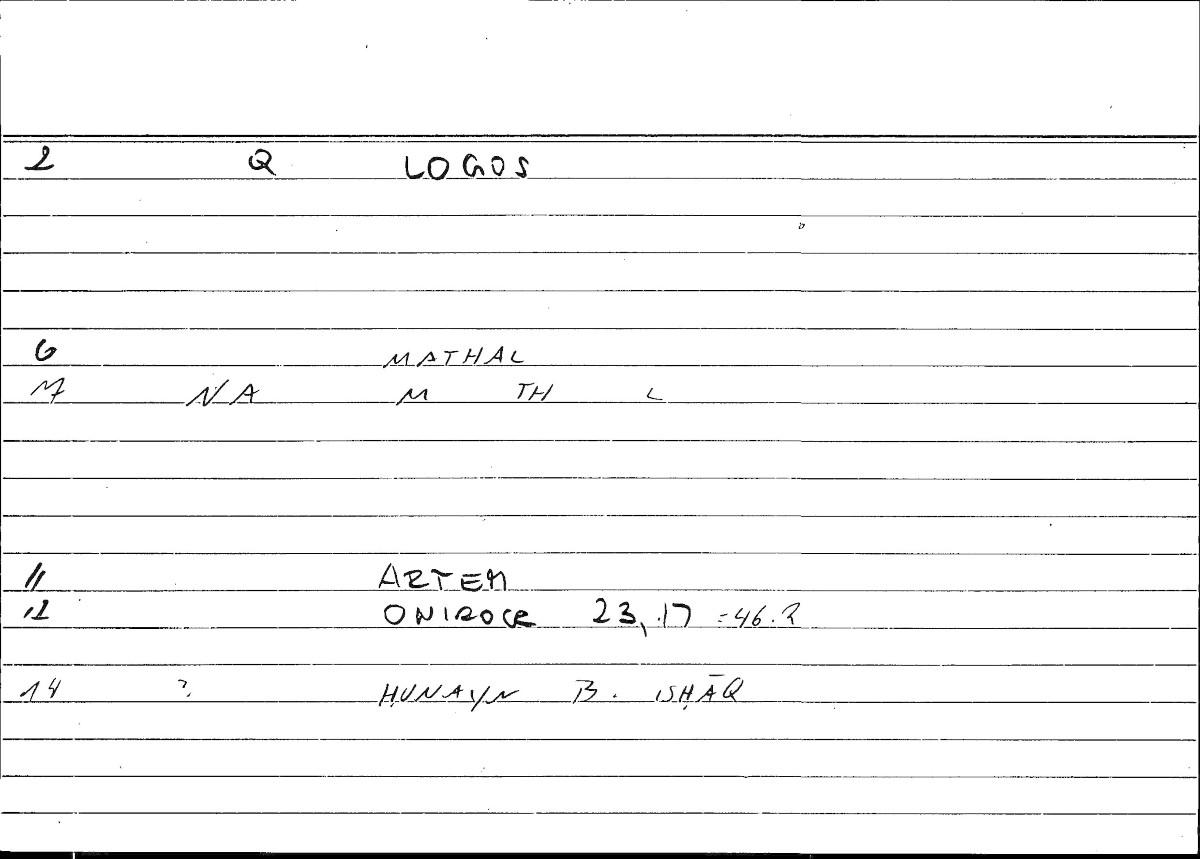 2 Q LOGOS
6 MATHAL
7 NA M TH L
11 ARTEM
12 ONIROCR 23,17 =46.2
14 ? ḤUNAYN B. ISḤĀQ